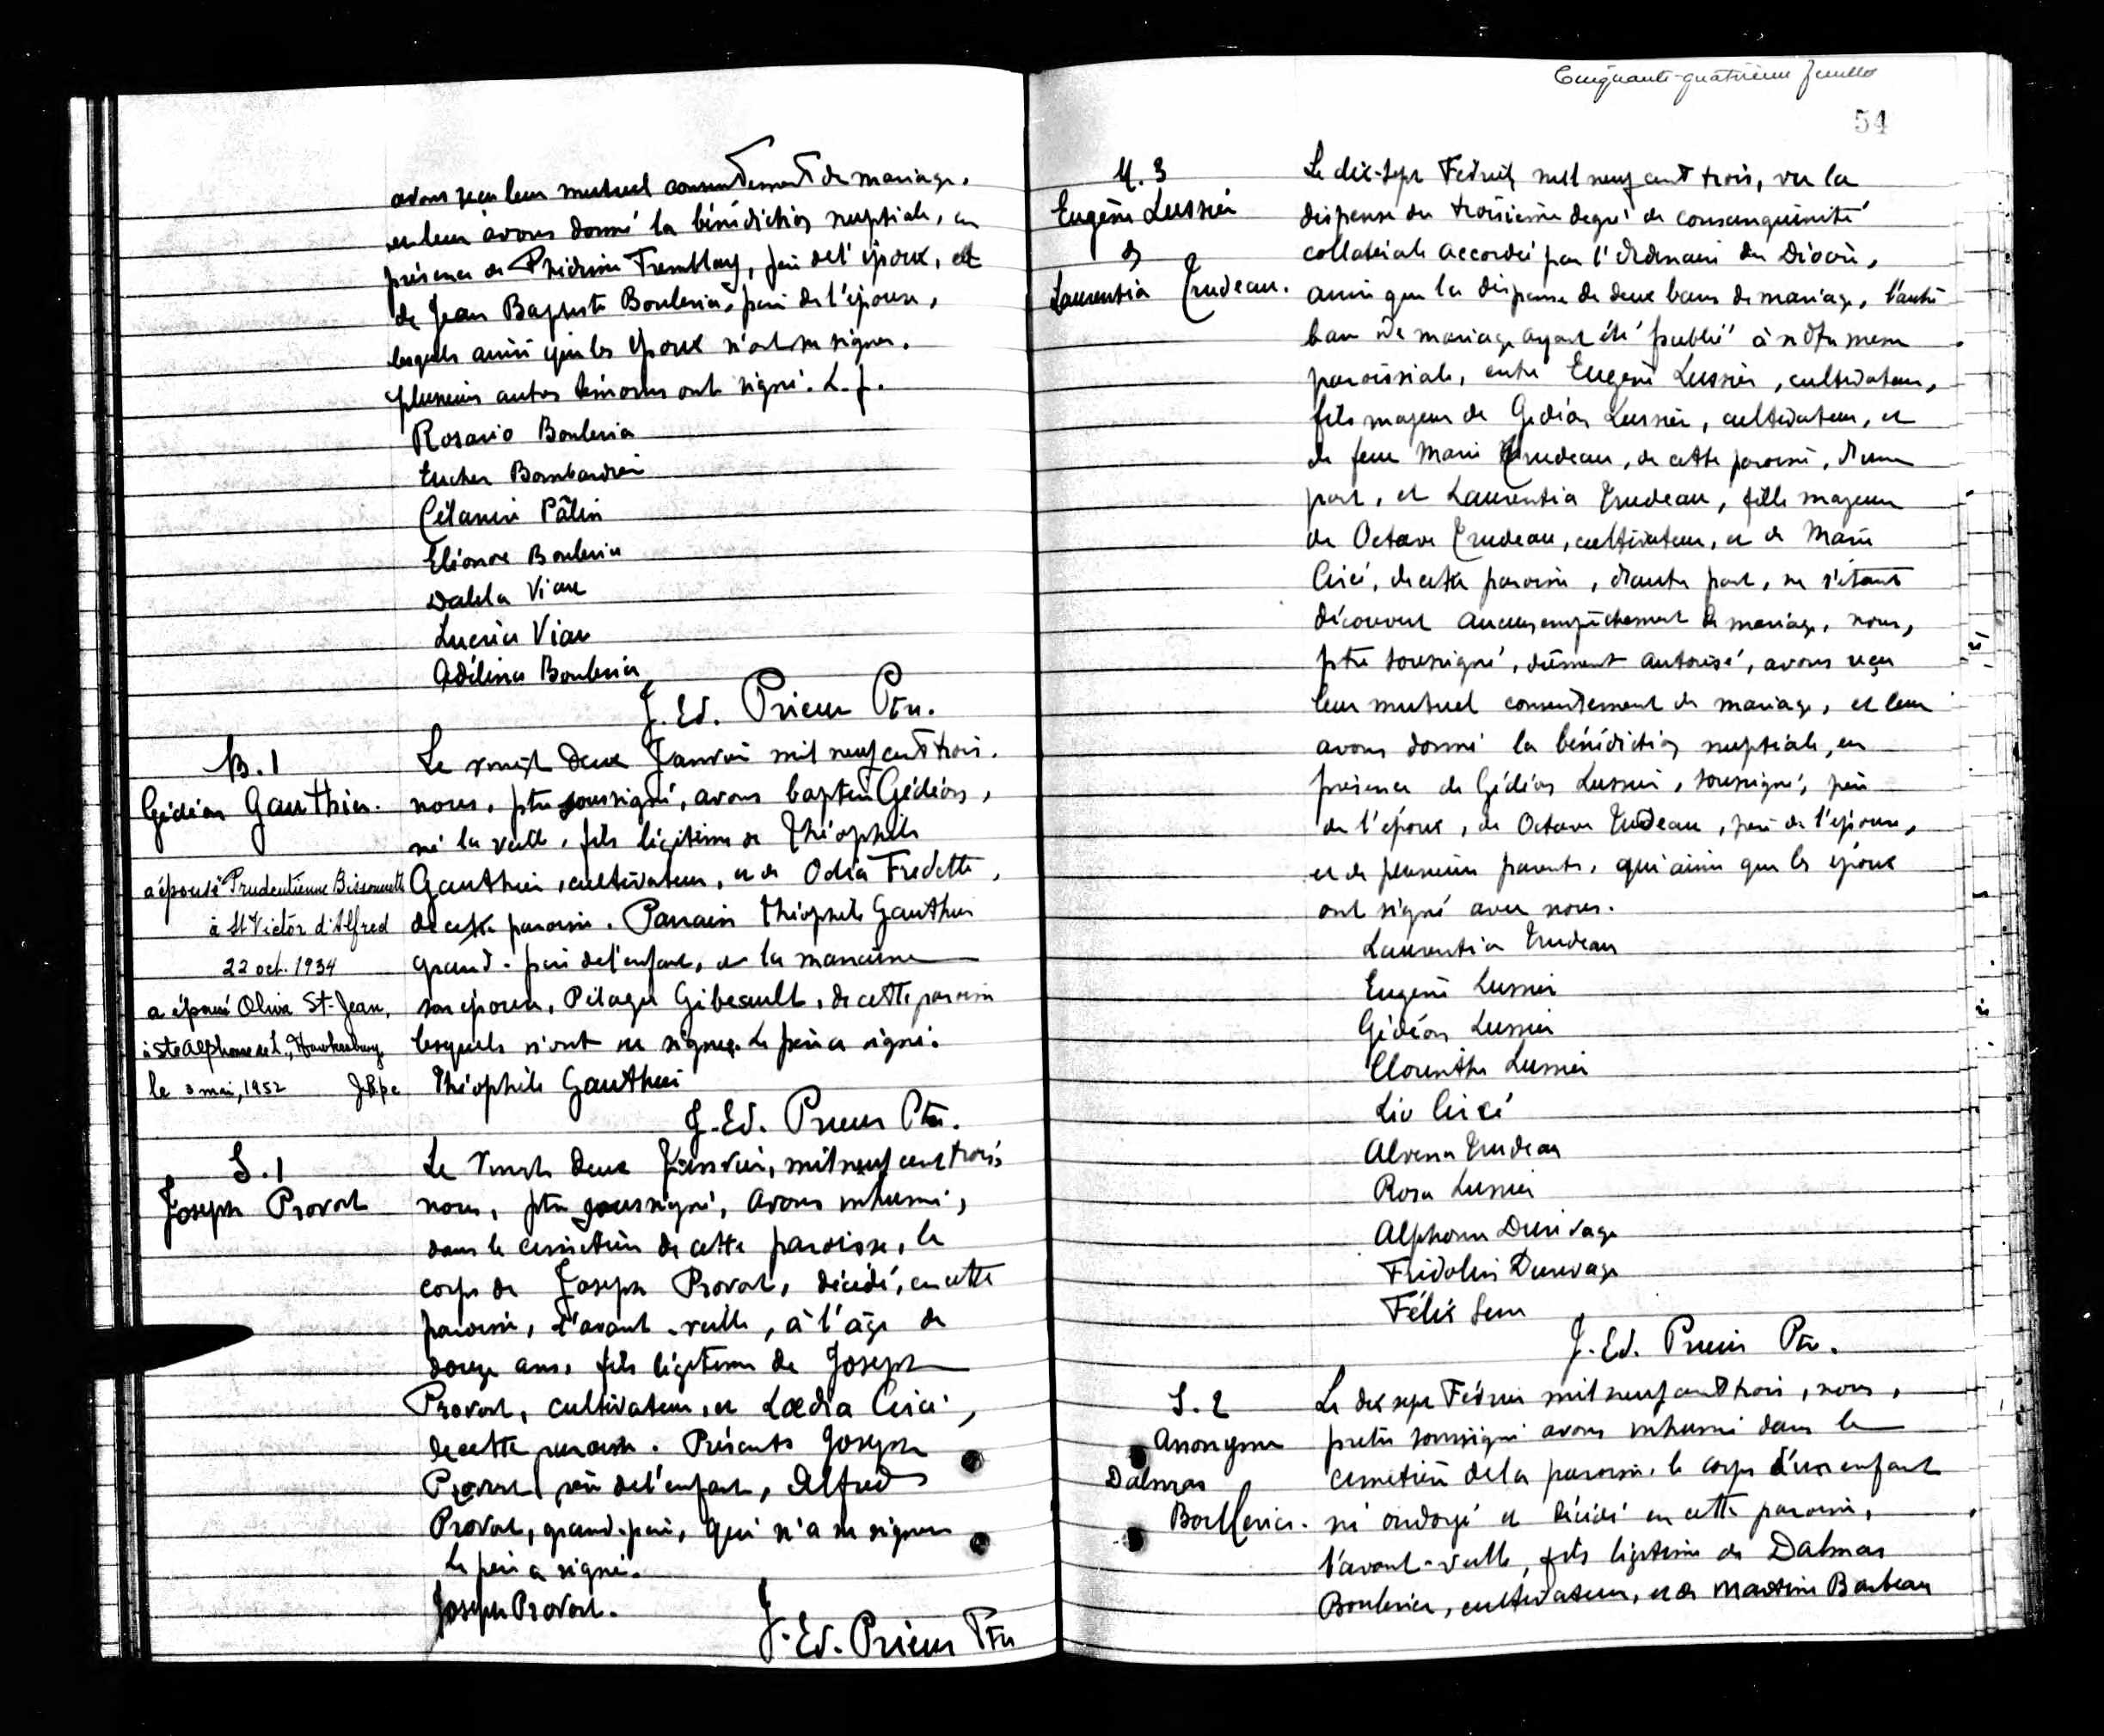 avons reçu leur mutuel consentement de mariage,
et leur avons donné la bénédiction nuptiale, en
présence de Phidime Tremblay, père de l'époux, et
de Jean Baptiste Bouleria, père de l'épouse,
lesquels ainsi que les époux n'ont su signer.
plusieurs autres témoins ont signé. L. f.
Rosario Bouleria
Bombardier
Célanire Pâlin
Eléonore Bouleria
Dalila Viau
Lucria Viau
Adélina Bouleria
J. Ed. Prieur Ptre.
B. 1
Gédéon Gauthier.
a épousé Prudentienne Bissonnette
à St Victor d'Alfred
22 oct. 1934
a épousé Oliva St-Jean,
à St Alphonse de L., Hawkesbury,
le 3 mai, 1952 JBpc
Le vingt deux Janvier mil neuf cent trois.
nous, ptre soussigné, avons baptisé Gédéon,
né la veille, fils légitime de Théophile
Gauthier, cultivateur, et de Odia Fredette,
de cette paroisse. Parrain Théophile Gauthier
grand-père de l'enfant, et la marraine
son épouse, Pélagie Gibeault, de cette paroisse
lesquels n'ont su signer. Le père a signé.
Théophile Gauthier
J. Ed. Prieur Ptre.
S. 1
Joseph Provost
Le vingt deux Janvier, mil neuf cent trois,
nous, ptre soussigné, avons inhumé,
dans le cimetière de cette paroisse, le
corps de Joseph Provost, décédé, en cette
paroisse, l'avant-veille, à l'âge de
douze ans, fils légitime de Joseph
Provost, cultivateur, et Lædia Ciré,
de cette paroisse. Présents Joseph
Provost père de l'enfant, Alfred
Provost, grand-père, qui n'a su signer
Le père a signé.
Joseph Provost.
J. Ed. Prieur Ptre
Cinquante-quatrième feuillet
54
M. 3
Eugène Lussier
&
Laurentia Trudeau.
Le dix-sept Février mil neuf cent trois, vu la
dispense du troisième degré de consanguinité
collatérale accordée par l'Ordinaire du Diocèse,
ainsi que la dispense de deux bans de mariage, l'autre
ban de mariage ayant été publié à notre messe
paroissiale, entre Eugène Lussier, cultivateur,
fils majeur de Gédéon Lussier, cultivateur, et
de feue Marie Trudeau, de cette paroisse, d'une
part, et Laurentia Trudeau, fille majeure
de Octave Trudeau, cultivateur, et de Marie
Ciré, de cette paroisse, d'autre part, ne s'étant
découvert aucun empêchement de mariage, nous,
ptre soussigné, dûment autorisé, avons reçu
leur mutuel consentement de mariage, et leur
avons donné la bénédiction nuptiale, en
présence de Gédéon Lussier, soussigné, père
de l'époux, de Octave Trudeau, père de l'épouse,
et de plusieurs parents, qui ainsi que les époux
ont signé avec nous.
Laurentia Trudeau
Eugène Lussier
Gédéon Lussier
Clorinthe Lussier
Léo Ciré
Alvena Trudeau
Rosa Lussier
Alphonse Durivage
Fridolin Durivage
Félix
J. Ed. Prieur Ptre.
S. 2
Anonyme
Dalmas
Boulleria.
Le dix sept Février mil neuf cent trois, nous,
prêtre soussigné avons inhumé dans le
cimetière de la paroisse, le corps d'un enfant
né ondoyé et décédé en cette paroisse,
l'avant-veille, fils légitime de Dalmas
Bouleria, cultivateur, et de Martine Barbeau